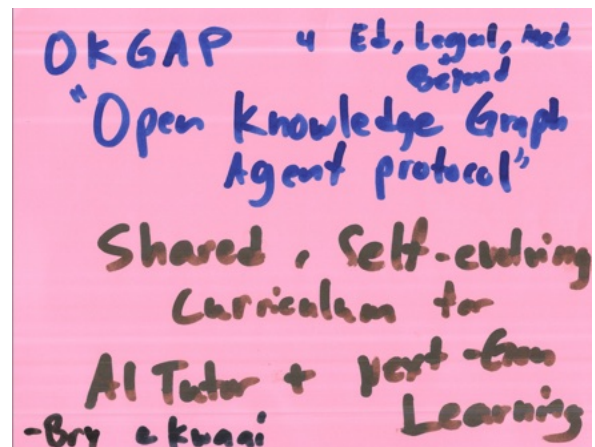 OKGAP 4 Ed, Legal, Med
+ Beyond
"Open Knowledge Graph
Agent protocol"
Shared, Self-evolving
Curriculum for
AI Tutor + Next-Gen
Learning
-Bry @ Kwaai